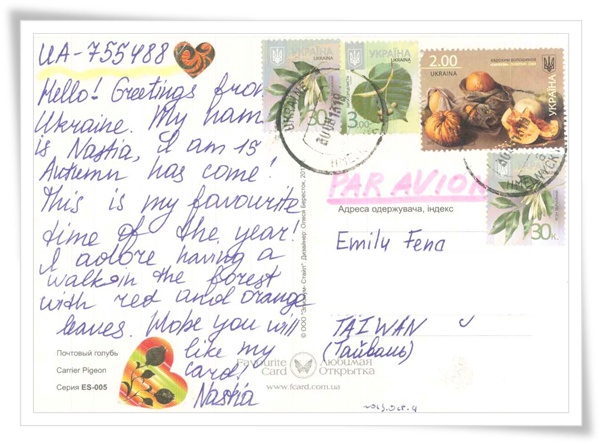 UA-755488
Hello! Greetings from
Ukraine. My name
is Nastia, I am 15
Autumn has come!
This is my favourite
time of the year!
I adore having a
walk in the forest
with red and orange
leaves. Hope you will
like my
card,
Nastia
Почтовый голубь
Carrier Pigeon
Серия ES-005
УКРАЇНА
UKRAINE
30к.
УКРАЇНА
UKRAINE
3.00
2.00
UKRAINE
УКРАЇНА
30к.
PAR AVION
Адреса одержувача, індекс
Emily Feng
TAIWAN
(Тайвань)
Favourite Card
Любимая Открытка
www.fcard.com.ua